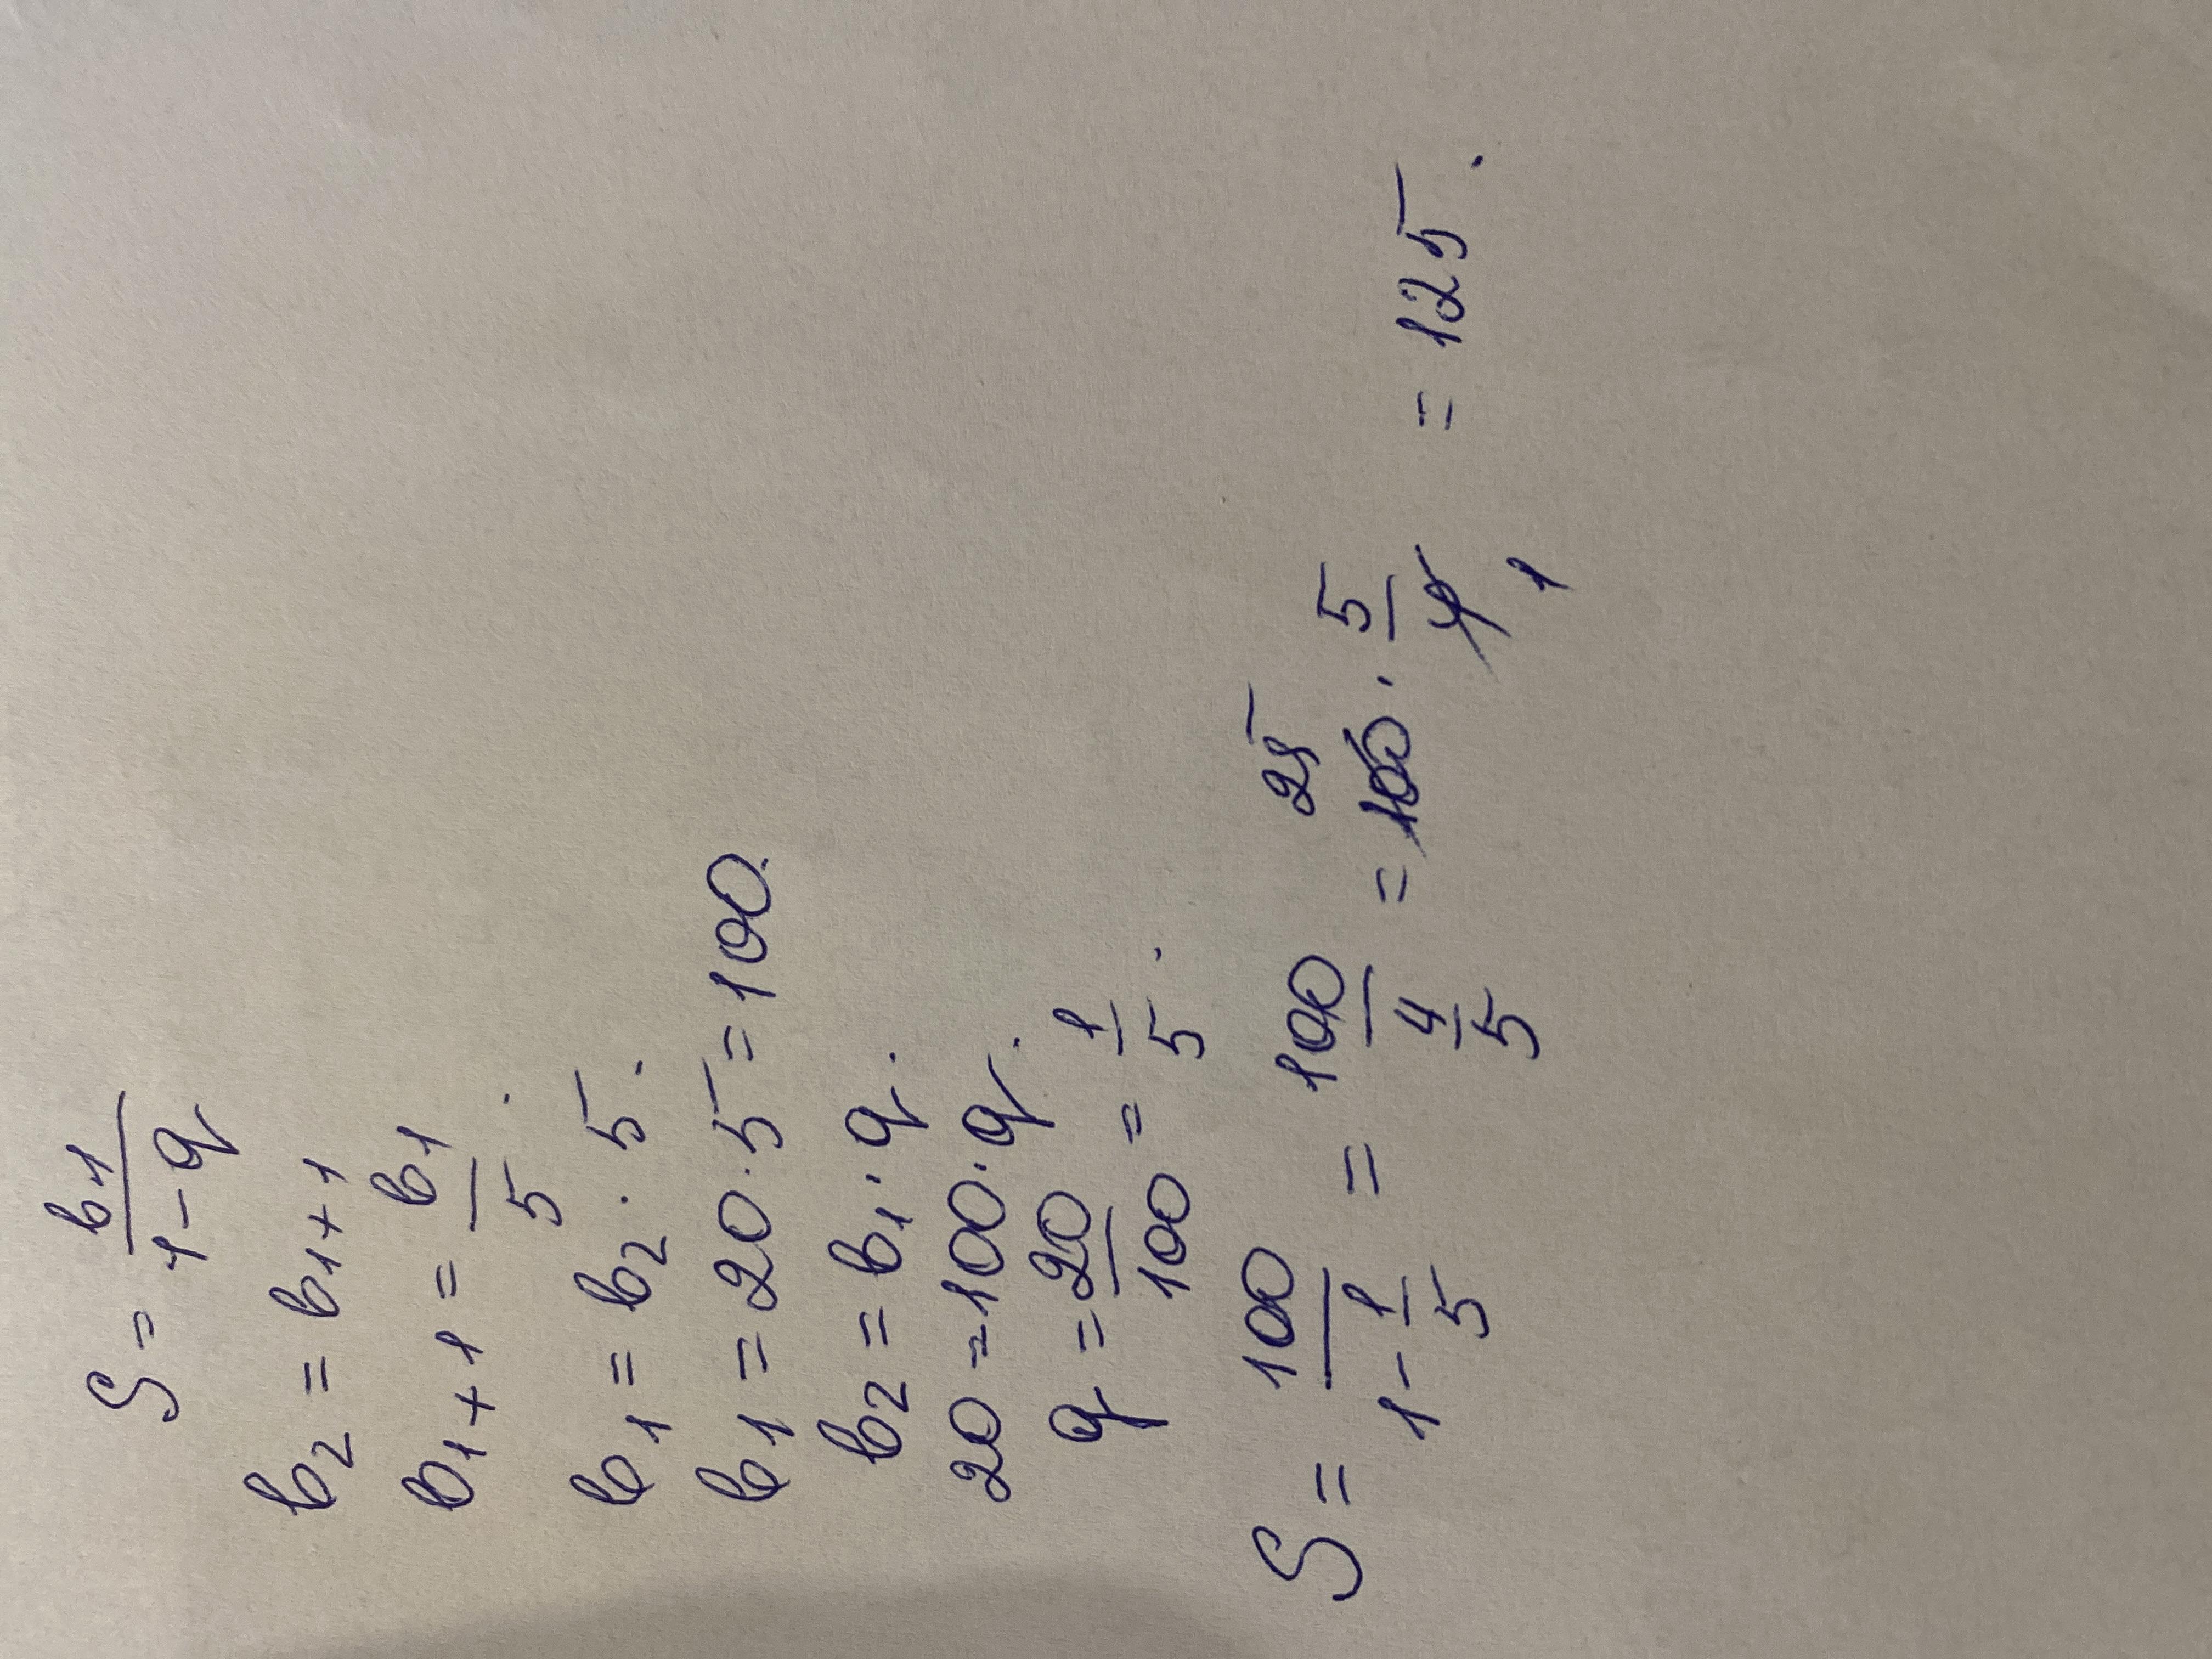 S = b₁/(1-q)
b₂ = b₁₊₁
b₁₊₁ = b₁/5.
b₁ = b₂ · 5.
b₁ = 20 · 5 = 100.
b₂ = b₁ · q.
20 = 100 · q.
q = 20/100 = 1/5.
S = 100/(1 - 1/5) = 100/(4/5) = 100 25 · 5/4 1 = 125.